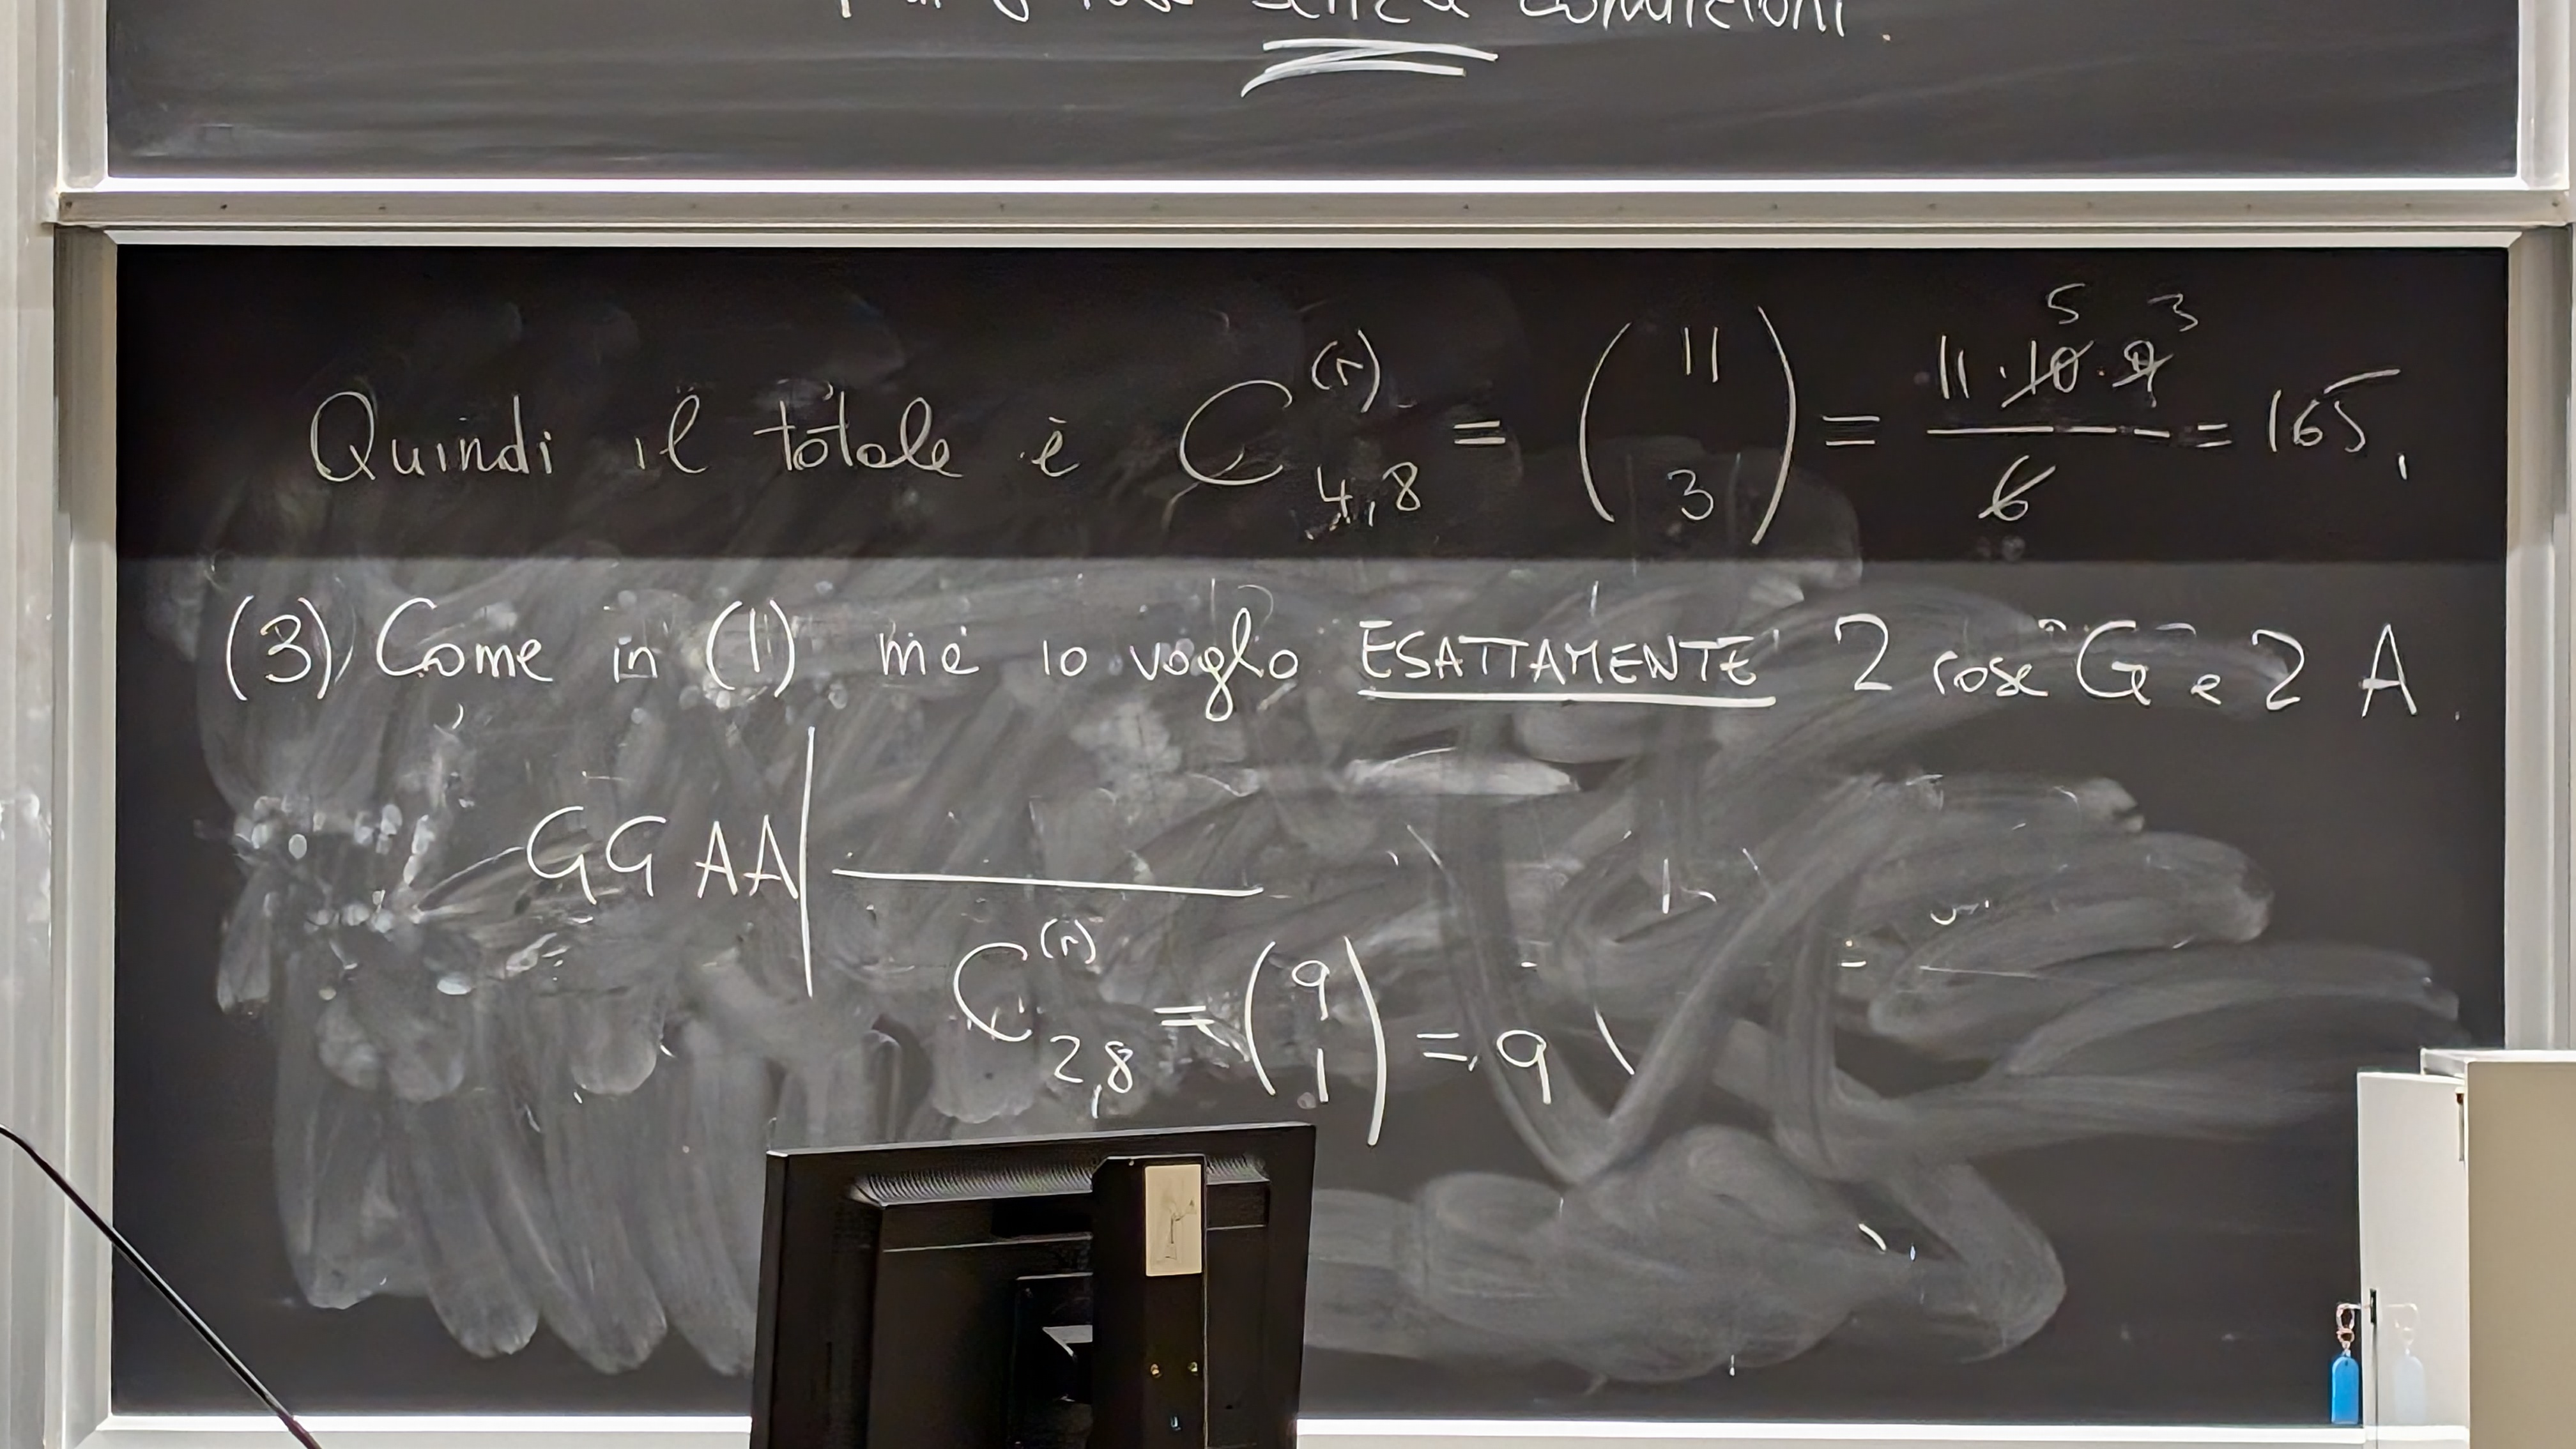 senza condizioni.
Quindi il totale è C^{(r)}_{4,8} = \binom{11}{3} = \frac{11 \cdot \cancel{10}^{5} \cdot \cancel{9}^{3}}{\cancel{6}} = 165.
(3) Come in (1) ma io voglio ESATTAMENTE 2 rose G e 2 A.
GG AA|
C^{(r)}_{2,8} = \binom{9}{1} = 9